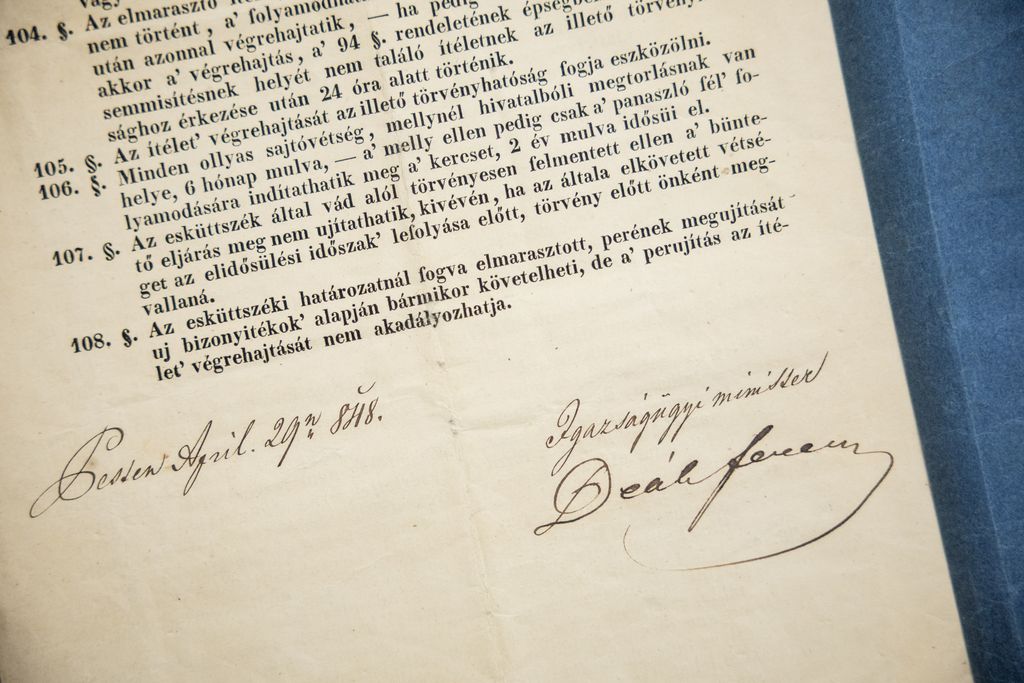 104. §. Az elmarasztó
nem történt, a' folyamodha
után azonnal végrehajtatik, — ha pedig
akkor a' végrehajtás, a' 94 §. rendeletének épségbe
semmisítésnek helyét nem találó ítéletnek az illető törvény
sághoz érkezése után 24 óra alatt történik.
105. §. Az ítélet' végrehajtását az illető törvényhatóság fogja eszközölni.
106. §. Minden ollyas sajtóvétség, mellynél hivatalbóli megtorlásnak van
helye, 6 hónap mulva, — a' melly ellen pedig csak a' panaszló fél' fo-
lyamodására indítathatik meg a' kereset, 2 év mulva idősüi el.
107. §. Az esküttszék által vád alól törvényesen felmentett ellen a' bünte-
tő eljárás meg nem ujítathatik, kivévén, ha az általa elkövetett vétsé-
get az elidősülési időszak' lefolyása előtt, törvény előtt önként meg-
vallaná.
108. §. Az esküttszéki határozatnál fogva elmarasztott, perének megujítását
uj bizonyitékok' alapján bármikor követelheti, de a' perujítás az íté-
let' végrehajtását nem akadályozhatja.
Pesten April. 29n 848.
Igazságügyi minister
Deák Ferencz